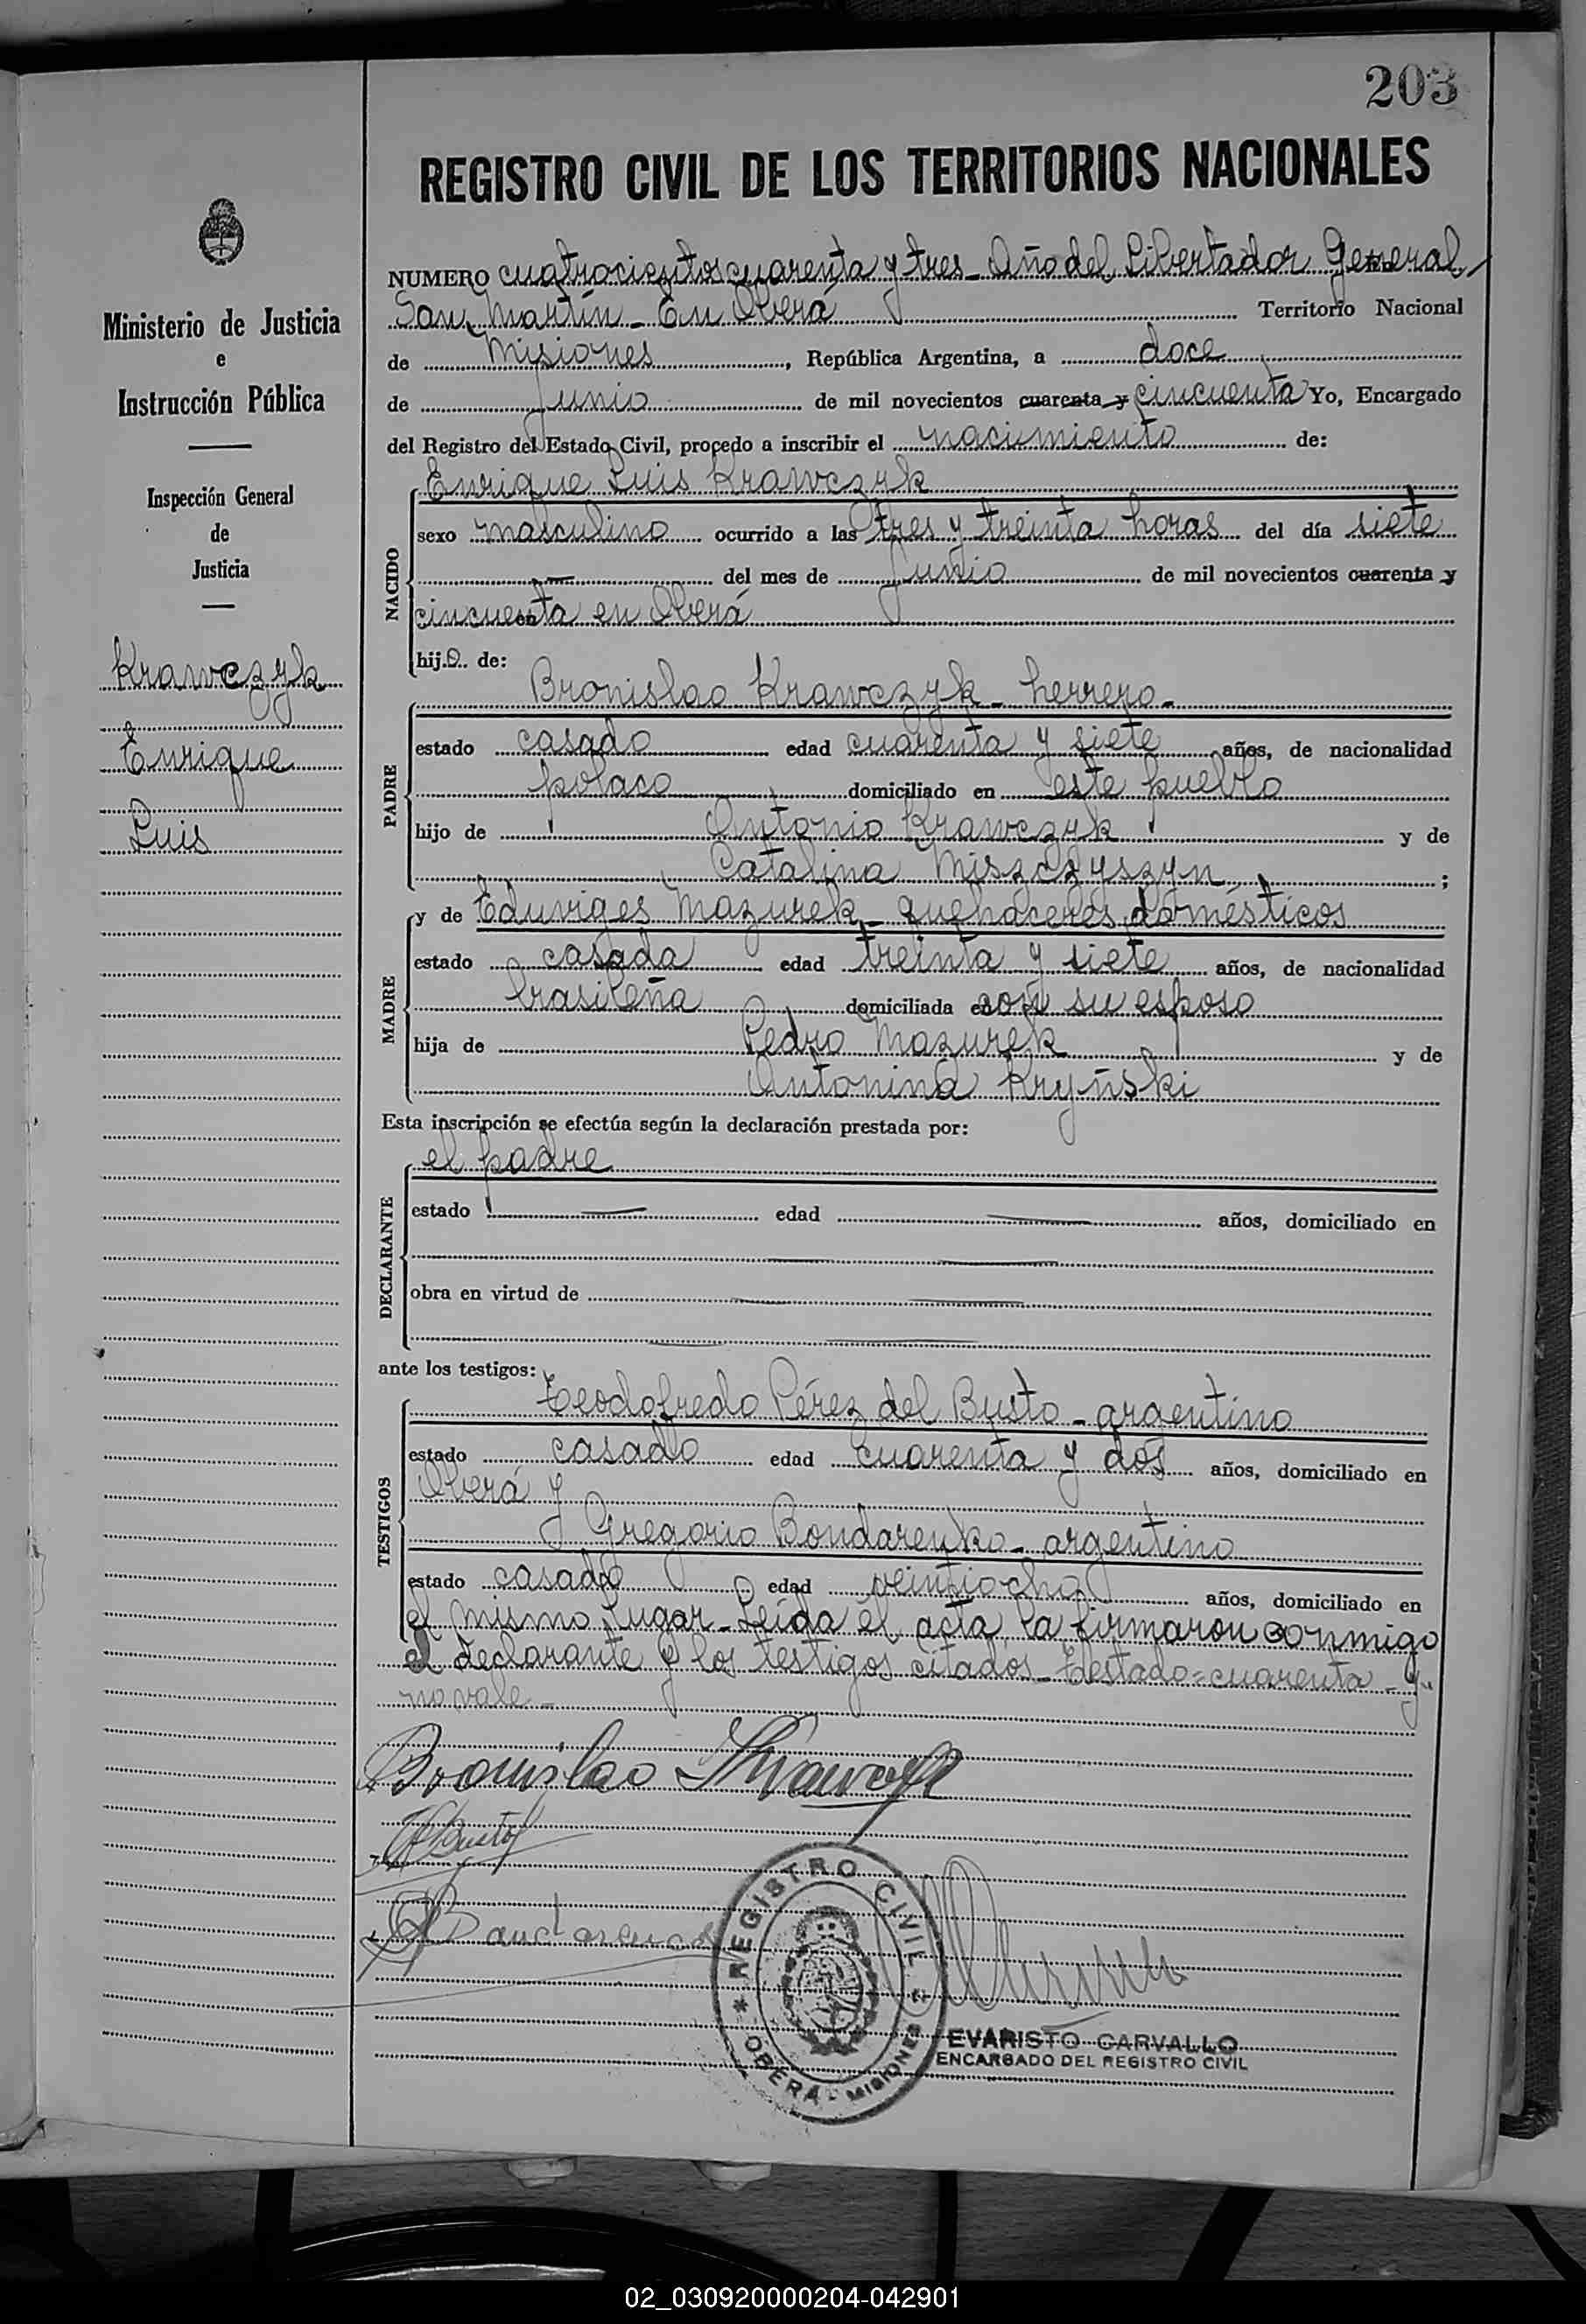 203
REGISTRO CIVIL DE LOS TERRITORIOS NACIONALES
Ministerio de Justicia
e
Instrucción Pública
Inspección General
de
Justicia
Krawczyk
Enrique
Luis
NUMERO cuatrocientos cuarenta y tres - Año del Libertador General
San Martín - En Oberá Territorio Nacional
de Misiones, República Argentina, a doce
de junio de mil novecientos cuarenta y cincuenta Yo, Encargado
del Registro del Estado Civil, procedo a inscribir el nacimiento de:
NACIDO
Enrique Luis Krawczyk
sexo masculino ocurrido a las tres y treinta horas del día siete
— del mes de junio de mil novecientos cuarenta y
cincuenta en Oberá
hijo de:
PADRE
Bronislao Krawczyk - herrero -
estado casado edad cuarenta y siete años, de nacionalidad
polaco domiciliado en este pueblo
hijo de Antonio Krawczyk y de
Catalina Miszczyszyn ;
MADRE
y de Eduviges Mazurek - quehaceres domésticos
estado casada edad treinta y siete años, de nacionalidad
brasileña domiciliada con su esposo
hija de Pedro Mazurek y de
Antonina Kryñski
Esta inscripción se efectúa según la declaración prestada por:
DECLARANTE
el padre
estado — edad — años, domiciliado en
obra en virtud de
ante los testigos:
TESTIGOS
Teodofredo Pérez del Busto - argentino
estado casado edad cuarenta y dos años, domiciliado en
Oberá y
Gregorio Bondarenko - argentino
estado casado edad veintiocho años, domiciliado en
el mismo lugar - Leída el acta, la firmaron conmigo
el declarante y los testigos citados - Testado = cuarenta - y"
no vale -
Bronislao Krawczyk
REGISTRO CIVIL
OBERÁ - MISIONES
EVARISTO CARVALLO
ENCARGADO DEL REGISTRO CIVIL
02_030920000204-042901